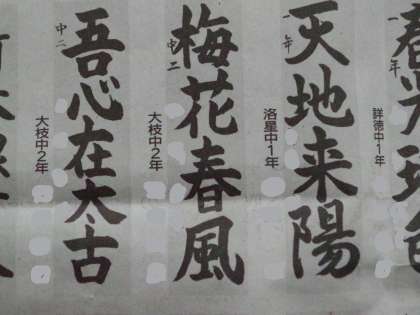 春光
一年
詳徳中1年
天地来陽
一年
洛星中1年
梅花春風
中二
大枝中2年
吾心在太古
中二
大枝中2年